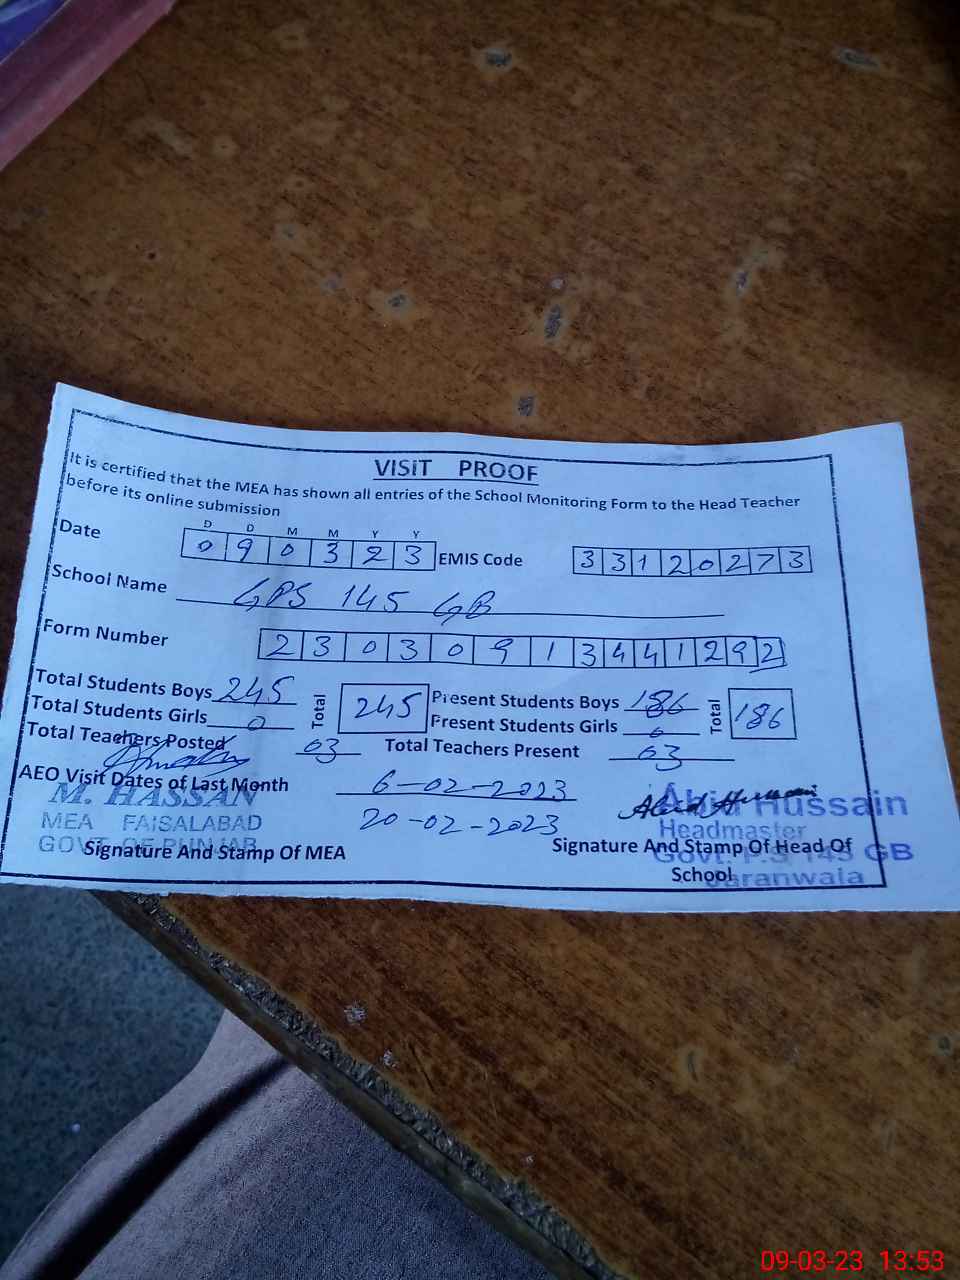 VISIT PROOF
It is certified that the MEA has shown all entries of the School Monitoring Form to the Head Teacher
before its online submission
D D M M Y Y
Date 0 9 0 3 2 3 EMIS Code 3 3 1 2 0 2 7 3
School Name GPS 145 GB
Form Number 2 3 0 3 0 9 1 3 4 4 1 2 9 2
Total Students Boys 245 Total 245 Present Students Boys 186 Total 186
Total Students Girls 0 Present Students Girls 0
Total Teachers Posted 03 Total Teachers Present 03
AEO Visit Dates of Last Month 6-02-2023
20-02-2023
M. HASSAN
MEA FAISALABAD
GOVT OF PUNJAB
Signature And Stamp Of MEA
Abid Hussain
Abid Hussain
Headmaster
Govt. P.S 145 GB
Jaranwala
Signature And Stamp Of Head Of
School
09-03-23 13:53